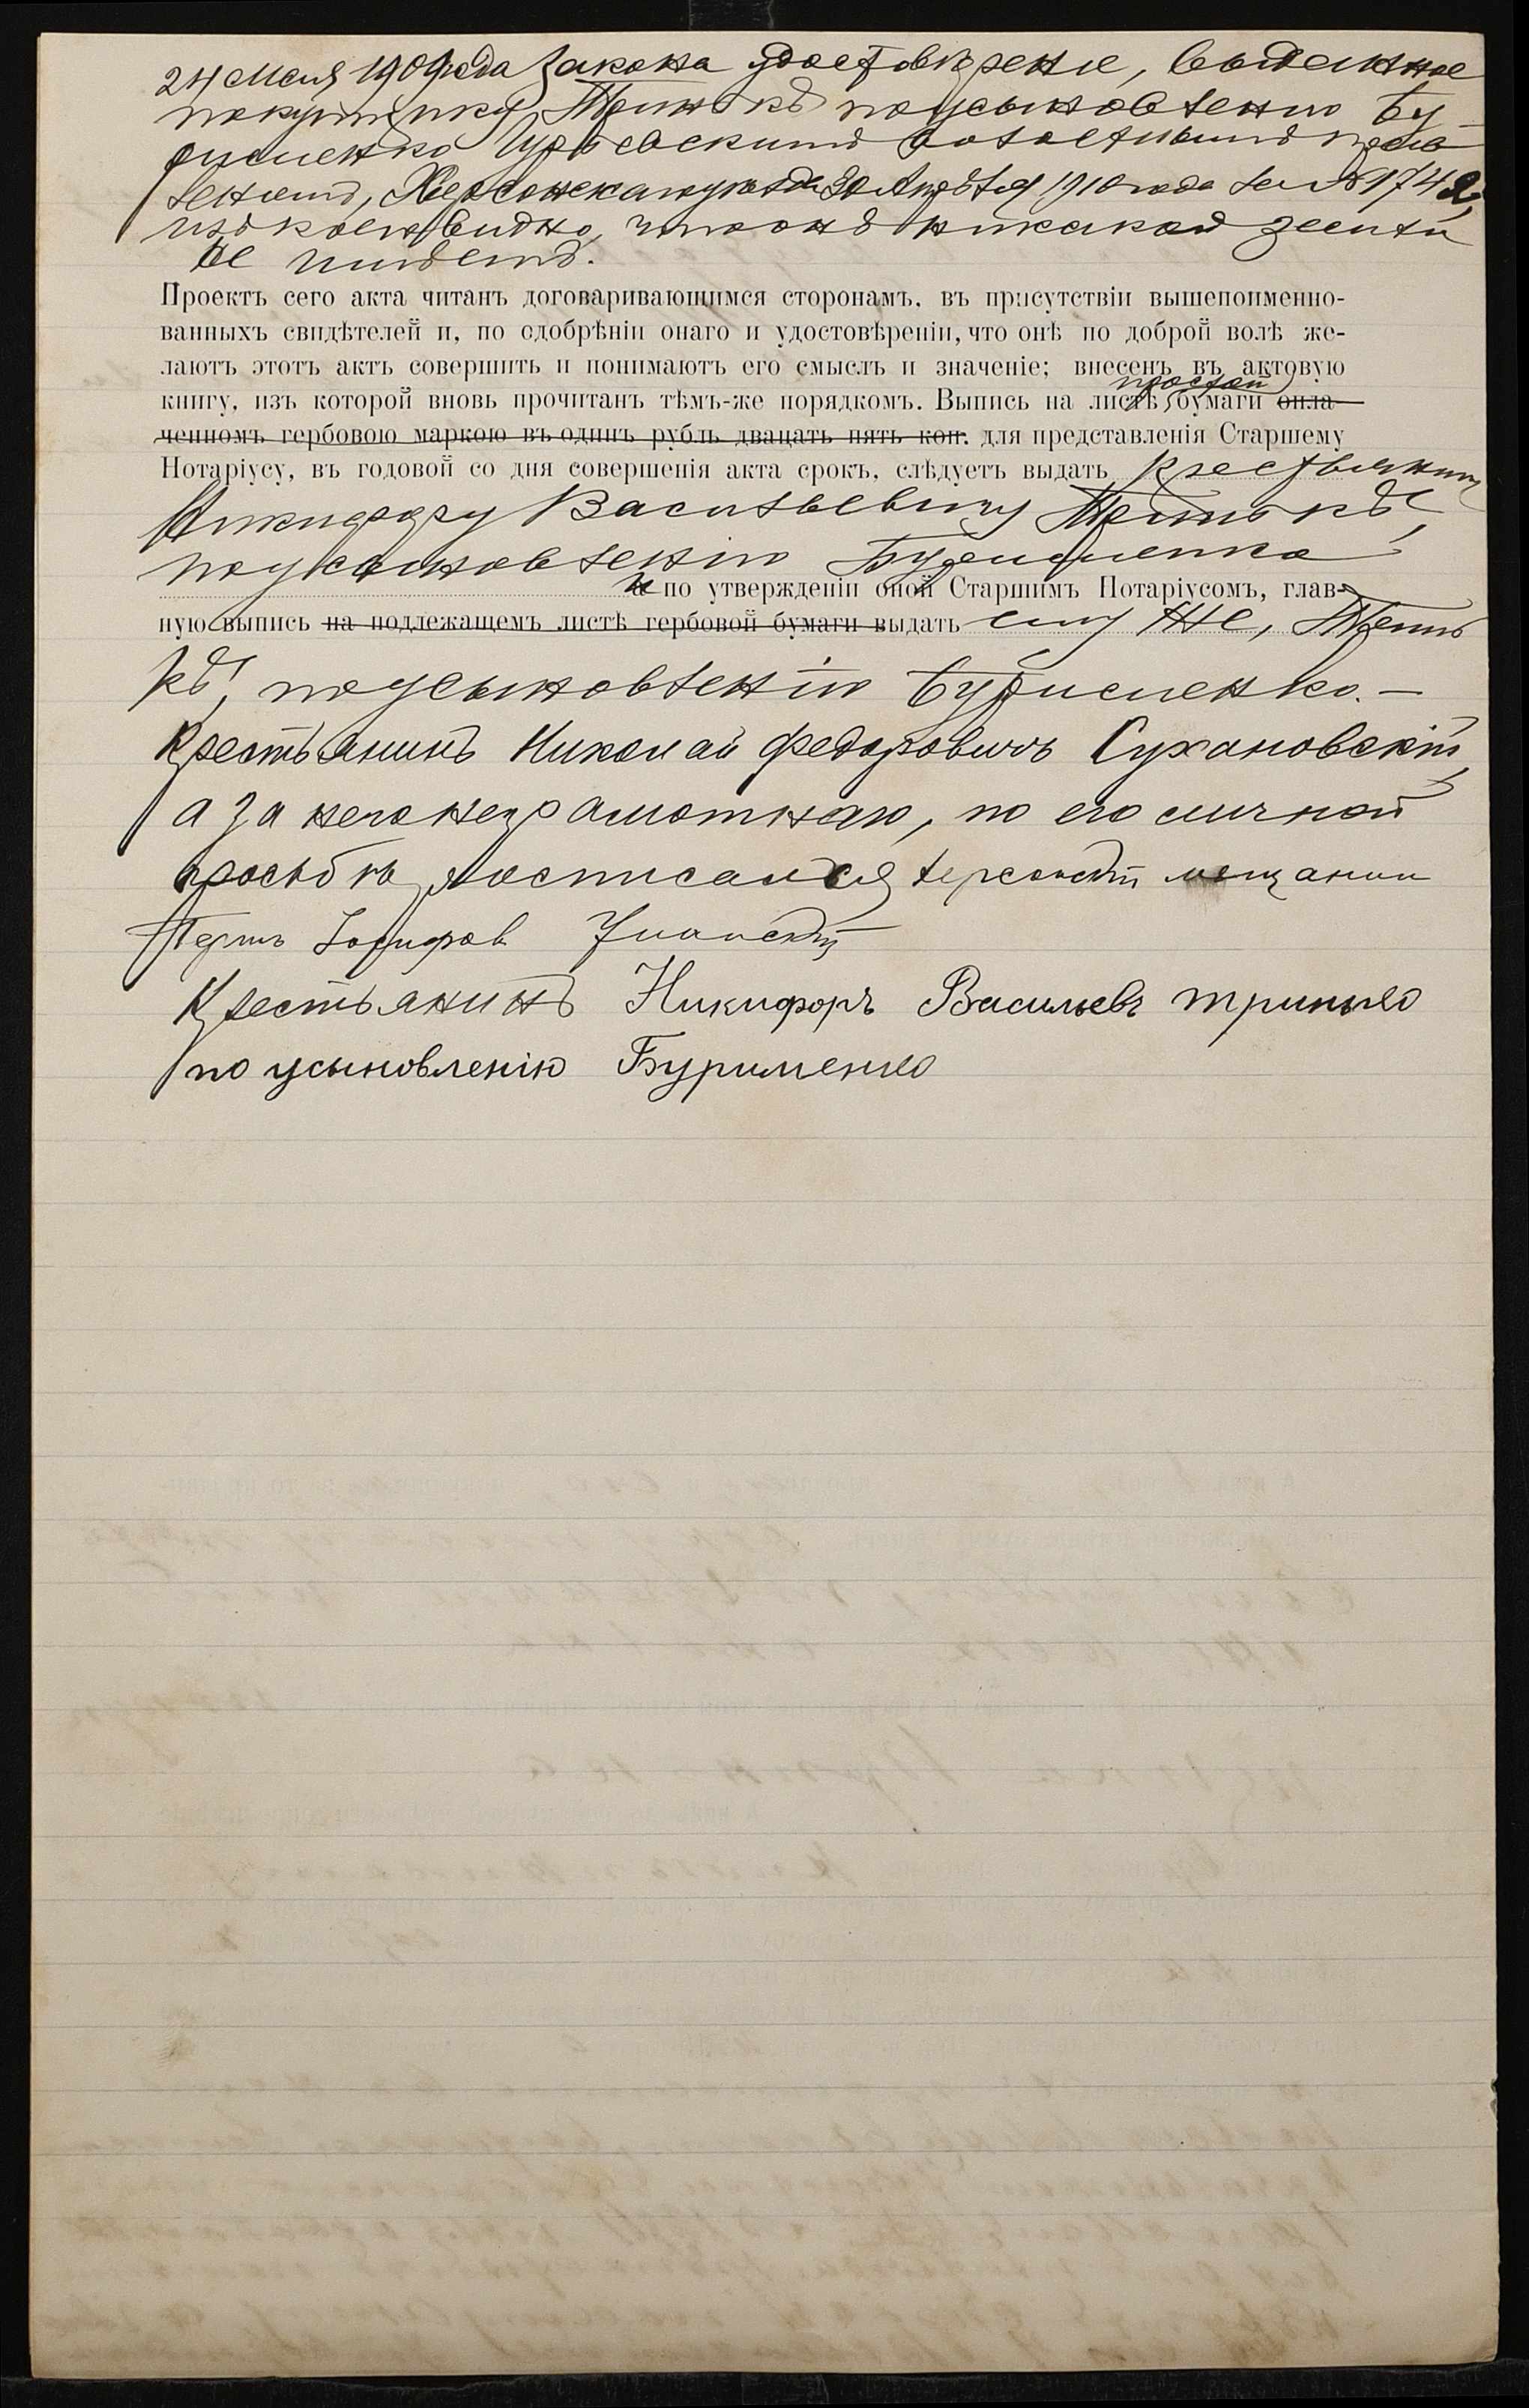 24 Мая 1909 года закона удостовѣреніе, выданное
покупщику Тринькѣ по усыновленію Бу-
рименко волостнымъ прав-
леніемъ, Херсонскаго уѣзда 30 Апрѣля 1910 года за № 1742,
изъ коего видно, что онъ никакой земли
не имѣетъ.
Проектъ сего акта читанъ договаривающимся сторонамъ, въ присутствіи вышепоименно-
ванныхъ свидѣтелей и, по одобрѣніи онаго и удостовѣреніи, что онѣ по доброй волѣ же-
лаютъ этотъ актъ совершить и понимаютъ его смыслъ и значеніе; внесенъ въ актовую
книгу, изъ которой вновь прочитанъ тѣмъ-же порядкомъ. Выпись на листѣ простой бумаги опла-
ченномъ гербовою маркою въ одинъ рубль двацать пять коп. для представленія Старшему
Нотаріусу, въ годовой со дня совершенія акта срокъ, слѣдуетъ выдать крестьянину
Никифору Васильевичу Тринькѣ,
по усыновленію Бурименко
и по утвержденіи оной Старшимъ Нотаріусомъ, глав-
ную выпись на подлежащемъ листѣ гербовой бумаги выдать ему же, Тринь
кѣ, по усыновленію Бурименко.—
Крестьянинъ Николай Федоровичъ Сухановскій,
а за него неграмотнаго, по его личной
просьбѣ, росписался херсонскій мещанин
Іосифов
Крестьянинъ Никифоръ Васильевъ Тринько
по усыновленію Бурименко